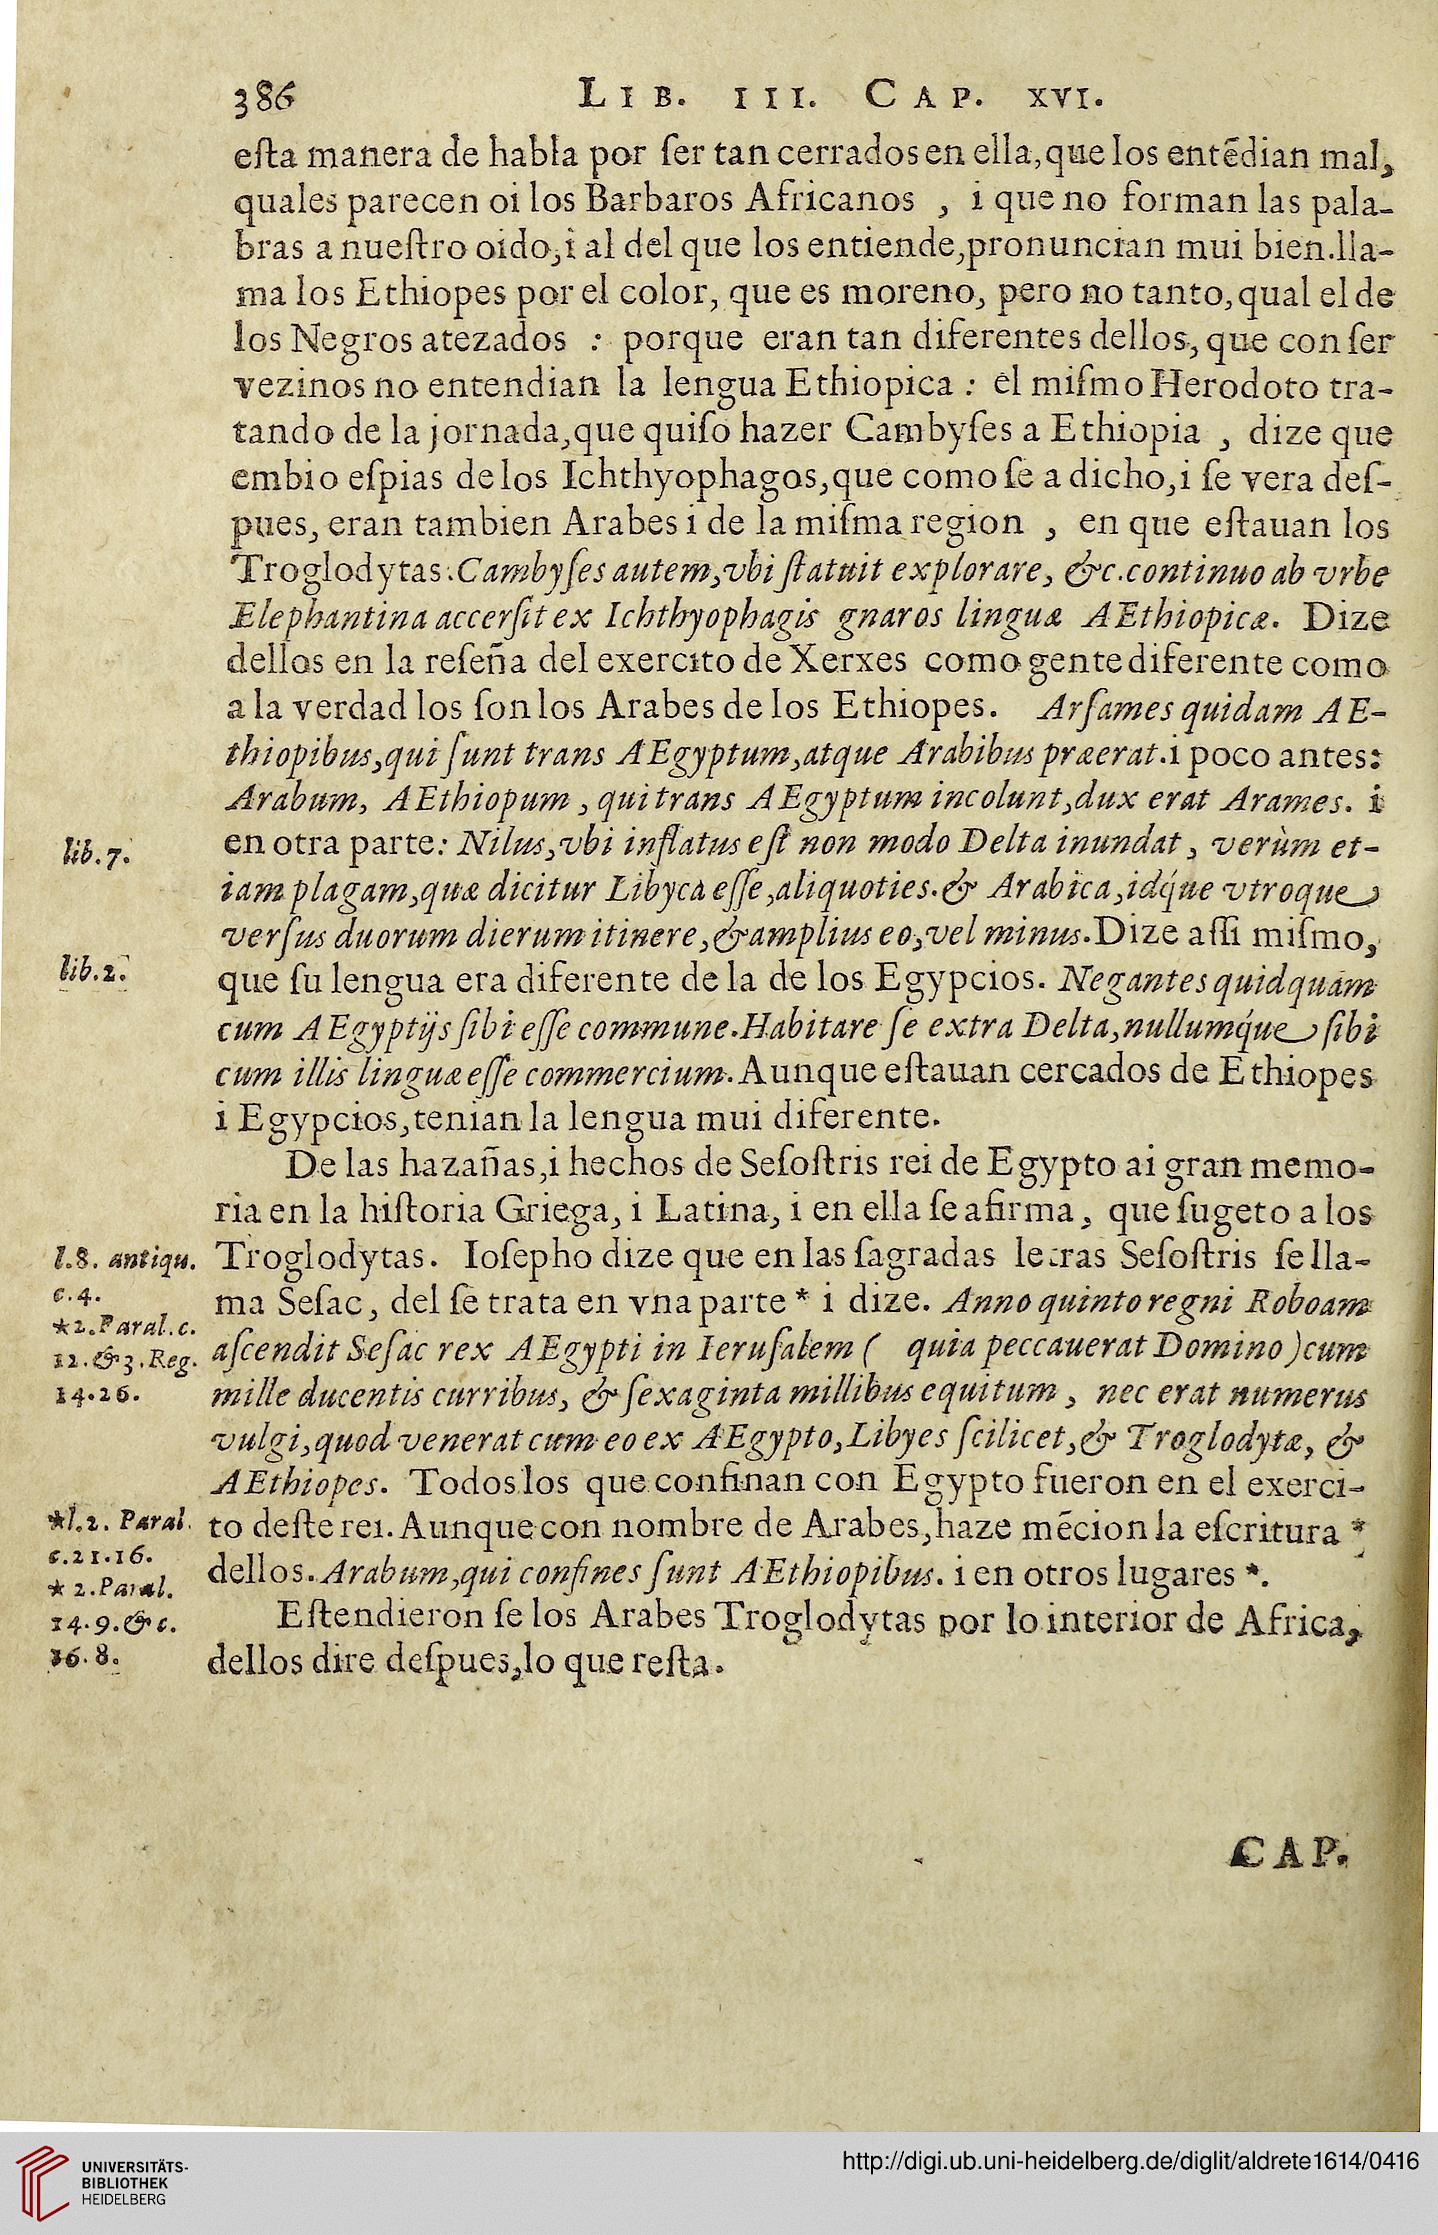 386 LIB. III. CAP. XVI.
eſta manera de habla por ſer tan cerrados en ella, que los entẽdian mal,
quales parecen oi los Barbaros Africanos , i que no forman las pala-
bras a nueſtro oido, i al del que los entiende, pronuncian mui bien. lla-
ma los Ethiopes por el color, que es moreno, pero no tanto, qual el de
los Negros atezados : porque eran tan diferentes dellos, que con ſer
vezinos no entendian la lengua Ethiopica : el miſmo Herodoto tra-
tando de la jornada, que quiſo hazer Cambyſes a Ethiopia , dize que
embio eſpias de los Ichthyophagos, que como ſe a dicho, i ſe vera deſ-
pues, eran tambien Arabes i de la miſma region , en que eſtauan los
Troglodytas. Cambyſes autem, vbi ſtatuit explorare, &c. continuo ab vrbe
Elephantina accerſit ex Ichthyophagis gnaros linguæ AEthiopicæ. Dize
dellos en la reſeña del exercito de Xerxes como gente diferente como
a la verdad los ſon los Arabes de los Ethiopes. Arſames quidam AE-
thiopibus, qui ſunt trans AEgyptum, atque Arabibus præerat. i poco antes:
Arabum, AEthiopum , qui trans AEgyptum incolunt, dux erat Arames. i
lib. 7. en otra parte: Nilus, vbi inflatus eſt non modo Delta inundat , verùm et-
iam plagam, quæ dicitur Libyca eſſe, aliquoties. & Arabica, idq́ue vtroque
verſus duorum dierum itinere, & amplius eo, vel minus. Dize aſſi miſmo,
lib. 2. que ſu lengua era diferente de la de los Egypcios. Negantes quidquam
cum AEgyptijs ſibi eſſe commune. Habitare ſe extra Delta, nullumq́ue ſibi
cum illis linguæ eſſe commercium. Aunque eſtauan cercados de Ethiopes
i Egypcios, tenian la lengua mui diferente.
De las hazañas, i hechos de Seſoſtris rei de Egypto ai gran memo-
ria en la hiſtoria Griega, i Latina, i en ella ſe afirma, que ſugeto a los
l. 8. antiqu. Troglodytas. Ioſepho dize que en las ſagradas letras Seſoſtris ſe lla-
c. 4. ma Seſac, del ſe trata en vna parte * i dize. Anno quinto regni Roboam
* 2. Paral. c.
12. & 3. Reg. aſcendit Seſac rex AEgypti in Ieruſalem ( quia peccauerat Domino ) cum
14. 26. mille ducentis curribus, & ſexaginta millibus equitum , nec erat numerus
vulgi, quod venerat cum eo ex AEgypto, Libyes ſcilicet, & Troglodytæ, &
AEthiopes. Todos los que confinan con Egypto fueron en el exerci-
* l. 2. Paral. to deſte rei. Aunque con nombre de Arabes, haze mẽcion la eſcritura *
c. 21. 16. dellos. Arabum, qui confines ſunt AEthiopibus. i en otros lugares *.
* 2. Paral.
14. 9. & c. Eſtendieron ſe los Arabes Troglodytas por lo interior de Africa,
16. 8. dellos dire deſpues, lo que reſta.
CAP.
UNIVERSITÄTS-
BIBLIOTHEK
HEIDELBERG
http://digi.ub.uni-heidelberg.de/diglit/aldrete1614/0416